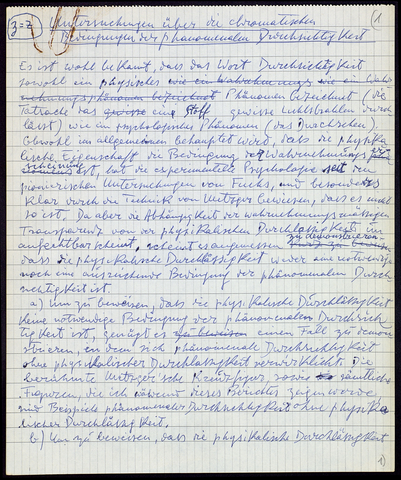 3=7 Untersuchungen über die chromatischen (1
Bedingungen der phänomenalen Durchsichtigkeit
Es ist wohl bekannt, dass das Wort Durchsichtigkeit
sowohl ein physisches wie ein Wahrnehmungs
bezeichnet Phänomen bezeichnet (die
Tatsache das gewisse eine Stoff gewisse Lichtstrahlen durch
lässt) wie ein psychologisches Phänomen (das Durchsehen).
Obwohl im allgemeinen behauptet wird, dass die physika
lische Eigenschaft die Bedingung der Wahrnehmungs
ist, hat die experimentelle Psychologie seit den
pionierischen Untersuchungen von Fuchs, und besonders
klar durch die Technik von Metzger bewiesen, dass es nicht
so ist. Da aber die Abhängigkeit der wahrnehmungsmässigen
Transparenz von der physikalischen Durchlässigkeit
unfechtbar scheint, scheint es angemessen zu demonstrieren
dass die physikalische Durchlässigkeit weder eine notwendige
noch eine ausreichende Bedingung der phänomenalen Durch
sichtigkeit ist.
a) um zu beweisen, dass die physikalische Durchlässigkeit
keine notwendige Bedingung der phänomenalen Durchsich
tigkeit ist, genügt es zu beweisen einen Fall zu demon
strieren, in dem sich phänomenale Durchsichtigkeit
ohne physikalischer Durchlässigkeit verwirklicht. Die
berühmte Metzger'sche Kreuzfigur sowie sämtliche
Figuren, die ich während dieses Berichtes zeigen werde
sind Beispiele phänomenaler Durchsichtigkeit ohne physika
lischer Durchlässigkeit.
b) Um zu beweisen, dass die physikalische Durchlässigkeit
1)